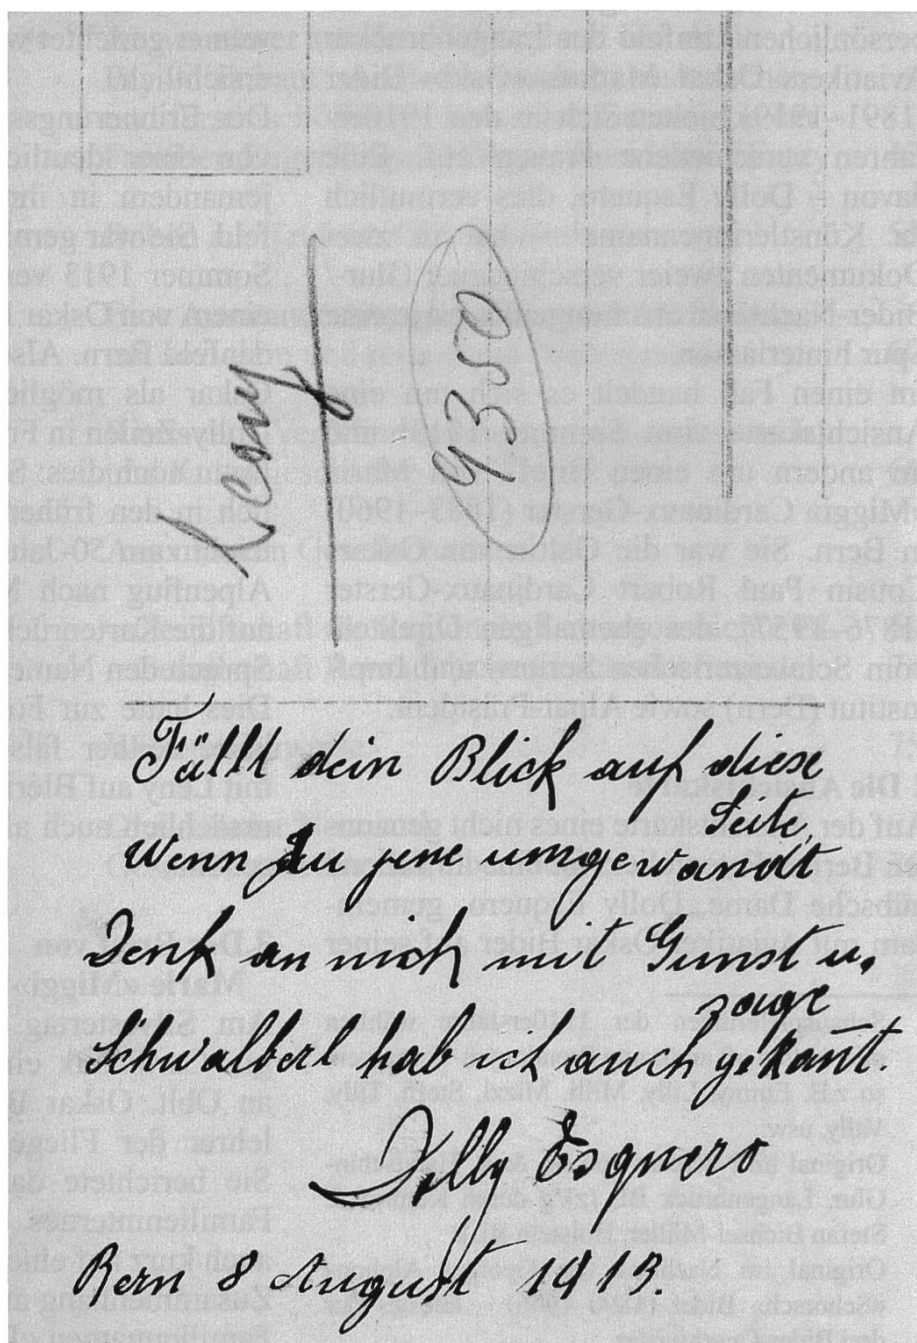 Leny
9350
Fällt dein Blick auf diese
Seite,
Wenn Du jene umgewandt
Denk an mich mit Gunst u.
sage
Schwalberl hab ich auch gekan̄t.
Dolly Esquero
Bern 8 August 1913.